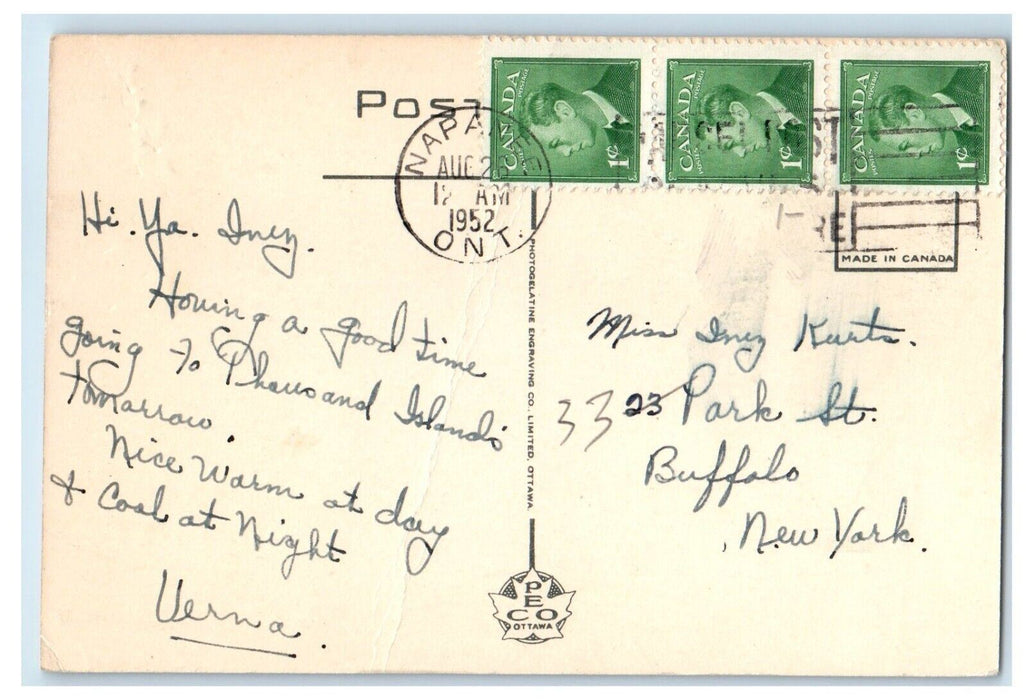 POST
CANADA
POSTES POSTAGE
1¢
CANADA
POSTES POSTAGE
1¢
CANADA
POSTES POSTAGE
1¢
NAPANEE
AUG 2
12 AM
1952
ONT.
MADE IN CANADA
Hi. Ya. Inez.
Having a good time
going to Thousand Islands
tomarrow.
Nice warm at day
& Cool at Night
Verna.
PHOTOGELATINE ENGRAVING CO., LIMITED, OTTAWA.
PECO
OTTAWA
Miss Inez Kurts.
33 23 Park St.
Buffalo
New York.